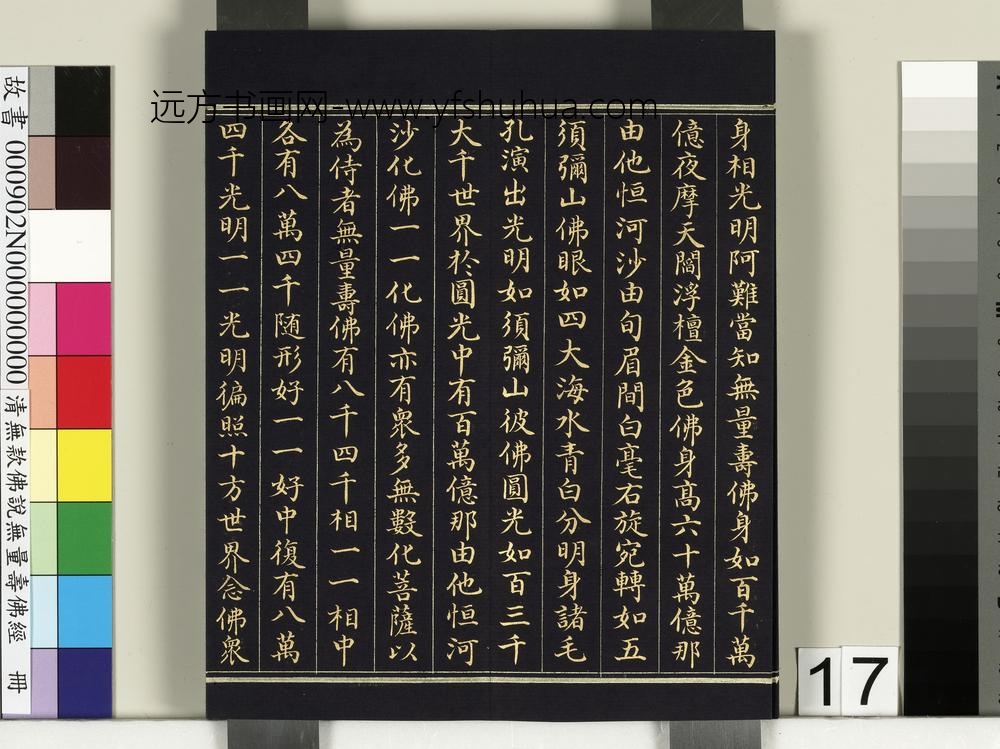 身相光明阿難當知無量壽佛身如百千萬
億夜摩天閻浮檀金色佛身高六十萬億那
由他恒河沙由旬眉間白毫右旋宛轉如五
須彌山佛眼如四大海水青白分明身諸毛
孔演出光明如須彌山彼佛圓光如百三千
大千世界於圓光中有百萬億那由他恒河
沙化佛一一化佛亦有衆多無數化菩薩以
為侍者無量壽佛有八千四千相一一相中
各有八萬四千随形好一一好中復有八萬
四千光明一一光明徧照十方世界念佛衆
远方书画网-www.yfshuhua.com
故書 000902N000000000 清無款佛說無量壽佛經 冊
17